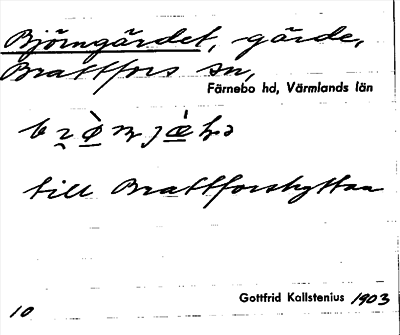 Björngärdet, gärde,
Brattfors sn,
Färnebo hd, Värmlands län
till Brattforshyttan
Gottfrid Kallstenius 1903
10